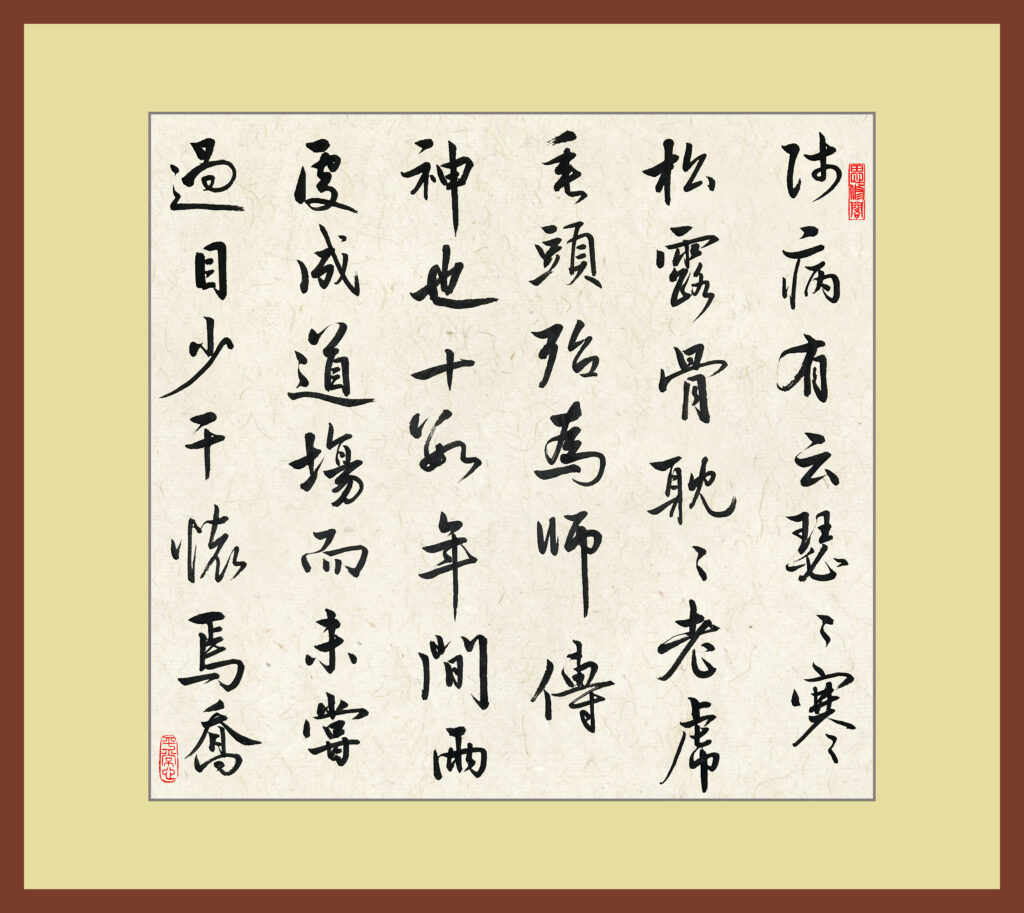 病有云瑟〻寒
松露骨耽〻老虎
毛頭殆為師傳
神也十數年間兩
處成道場而未嘗
過目少干懷焉喬
思修閣
平常心